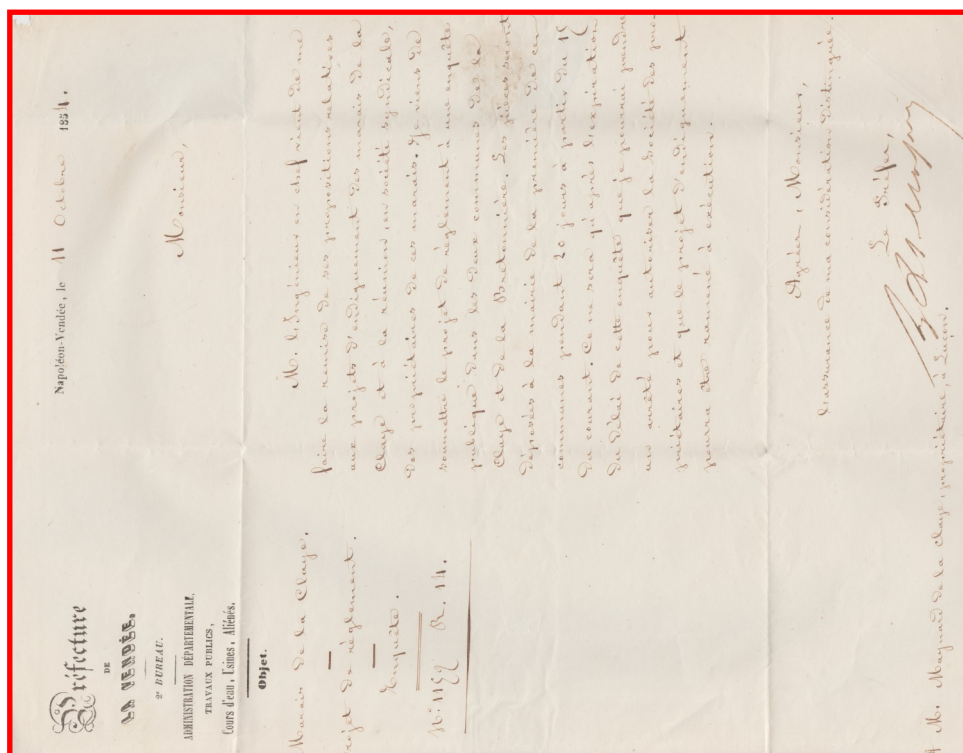 Préfecture
DE
LA VENDÉE.
2e BUREAU.
ADMINISTRATION DÉPARTEMENTALE.
TRAVAUX PUBLICS,
Cours d'eau, Usines, Aliénés.
Objet.
Marais de la Claye.
rojet de réglement.
Enquête.
N° 1192 R. 14.
Napoléon-Vendée, le 11 Octobre 1854.
Monsieur,
M. l'Ingénieur en chef vient de me
faire la remise de ses propositions relatives
aux projets d'endiguement des marais de la
Claye et à la réunion, en société syndicale,
des propriétaires de ces marais. Je viens de
soumettre le projet de réglement à une enquête
publique dans les deux communes de la
Claye et de la Bretonnière. Les pièces seront
déposées à la mairie de la première de ces
communes pendant 20 jours à partir du 15
du courant. Ce ne sera qu'après l'expiration
du délai de cette enquête que je pourrai prendre
un arrêté pour autoriser la Société des pro-
priétaires et que le projet d'endiguement
pourra être ramené à exécution.
Agréez, Monsieur,
l'assurance de ma considération distinguée.
Le Préfet,
A M. Maynard de la Claye, propriétaire, à Luçon.